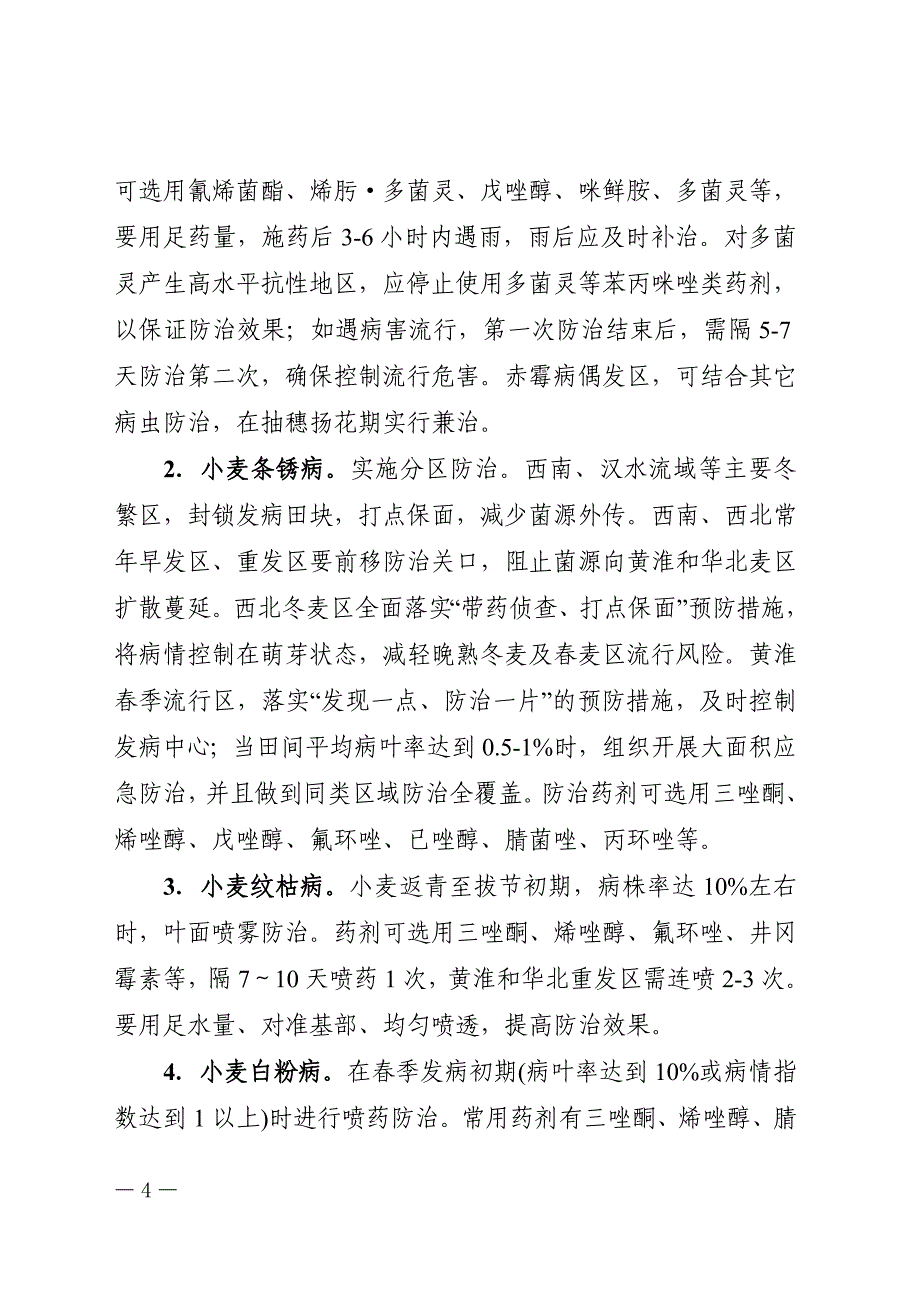 可选用氰烯菌酯、烯肟·多菌灵、戊唑醇、咪鲜胺、多菌灵等，
要用足药量，施药后 3-6 小时内遇雨，雨后应及时补治。对多菌
灵产生高水平抗性地区，应停止使用多菌灵等苯丙咪唑类药剂，
以保证防治效果；如遇病害流行，第一次防治结束后，需隔 5-7
天防治第二次，确保控制流行危害。赤霉病偶发区，可结合其它
病虫防治，在抽穗扬花期实行兼治。
2. 小麦条锈病。实施分区防治。西南、汉水流域等主要冬
繁区，封锁发病田块，打点保面，减少菌源外传。西南、西北常
年早发区、重发区要前移防治关口，阻止菌源向黄淮和华北麦区
扩散蔓延。西北冬麦区全面落实“带药侦查、打点保面”预防措施，
将病情控制在萌芽状态，减轻晚熟冬麦及春麦区流行风险。黄淮
春季流行区，落实“发现一点、防治一片”的预防措施，及时控制
发病中心；当田间平均病叶率达到 0.5-1%时，组织开展大面积应
急防治，并且做到同类区域防治全覆盖。防治药剂可选用三唑酮、
烯唑醇、戊唑醇、氟环唑、已唑醇、腈菌唑、丙环唑等。
3. 小麦纹枯病。小麦返青至拔节初期，病株率达 10%左右
时，叶面喷雾防治。药剂可选用三唑酮、烯唑醇、氟环唑、井冈
霉素等，隔 7～10 天喷药 1 次，黄淮和华北重发区需连喷 2-3 次。
要用足水量、对准基部、均匀喷透，提高防治效果。
4. 小麦白粉病。在春季发病初期(病叶率达到 10%或病情指
数达到 1 以上)时进行喷药防治。常用药剂有三唑酮、烯唑醇、腈
— 4 —